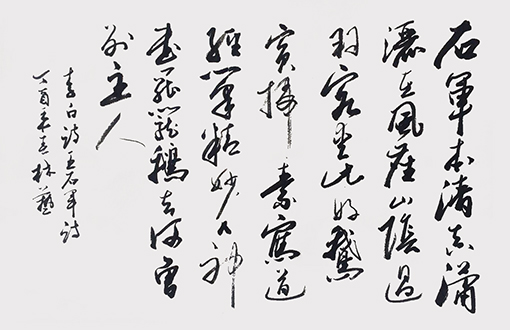 右軍本清真瀟
灑在風塵山陰過
羽客愛此好鵞
賓掃素寫道
經筆精妙入神
書罷籠鵝去何曾
別主人
李白詩王右軍詩
丁酉年林藝